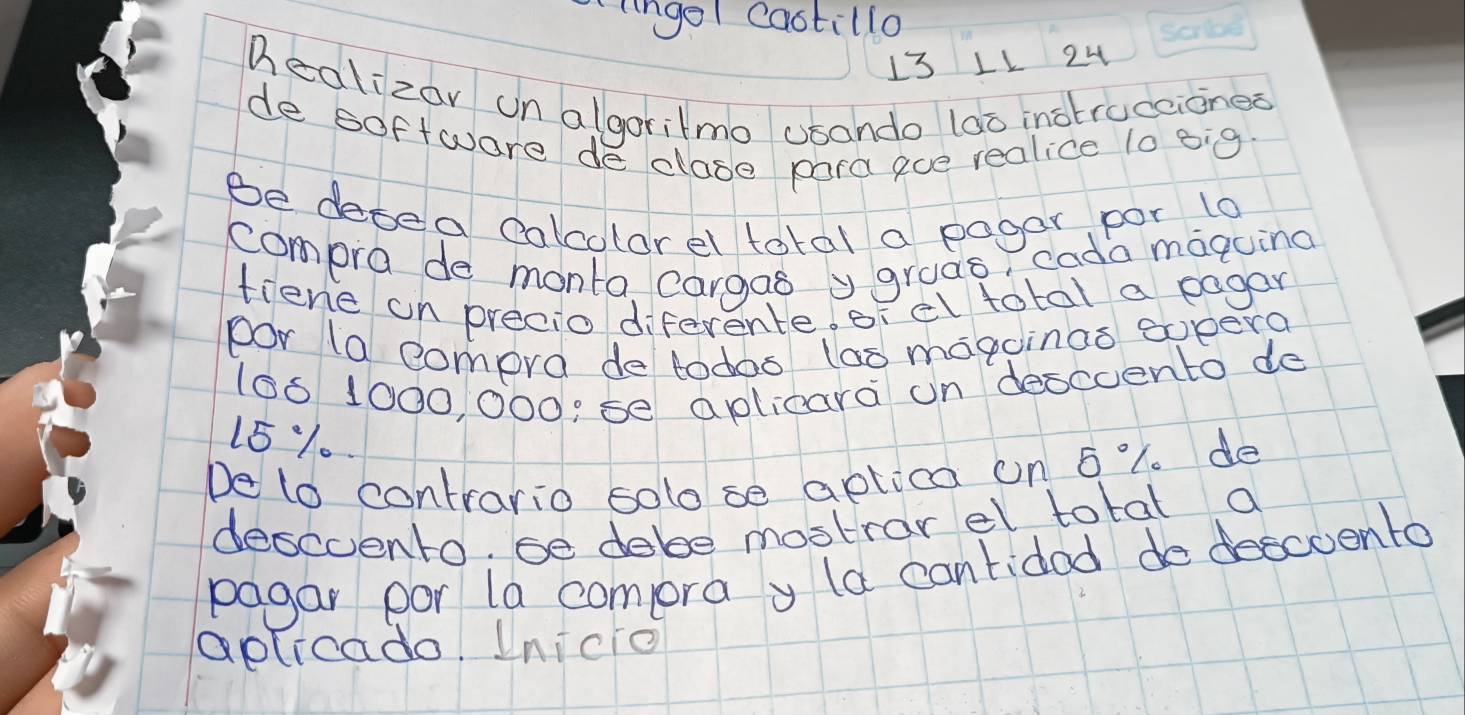 Angel castillo
Scribe
13 11 24
Realizar un algoritmo usando las instrucciones
de software de clase para que realice lo sig.
Se desea calcular el total a pagar por la
compra de monta cargas y gruas, cada máquina
tiene un precio diferente. si el total a pagar
por la compra de todas las máquinas supera
los 1000,000; se aplicará un descuento de
15%.
De lo contrario solo se aplica un 5% de
descuento. se debe mostrar el total a
pagar por la compra y la cantidad de descuento
aplicado. Inicio